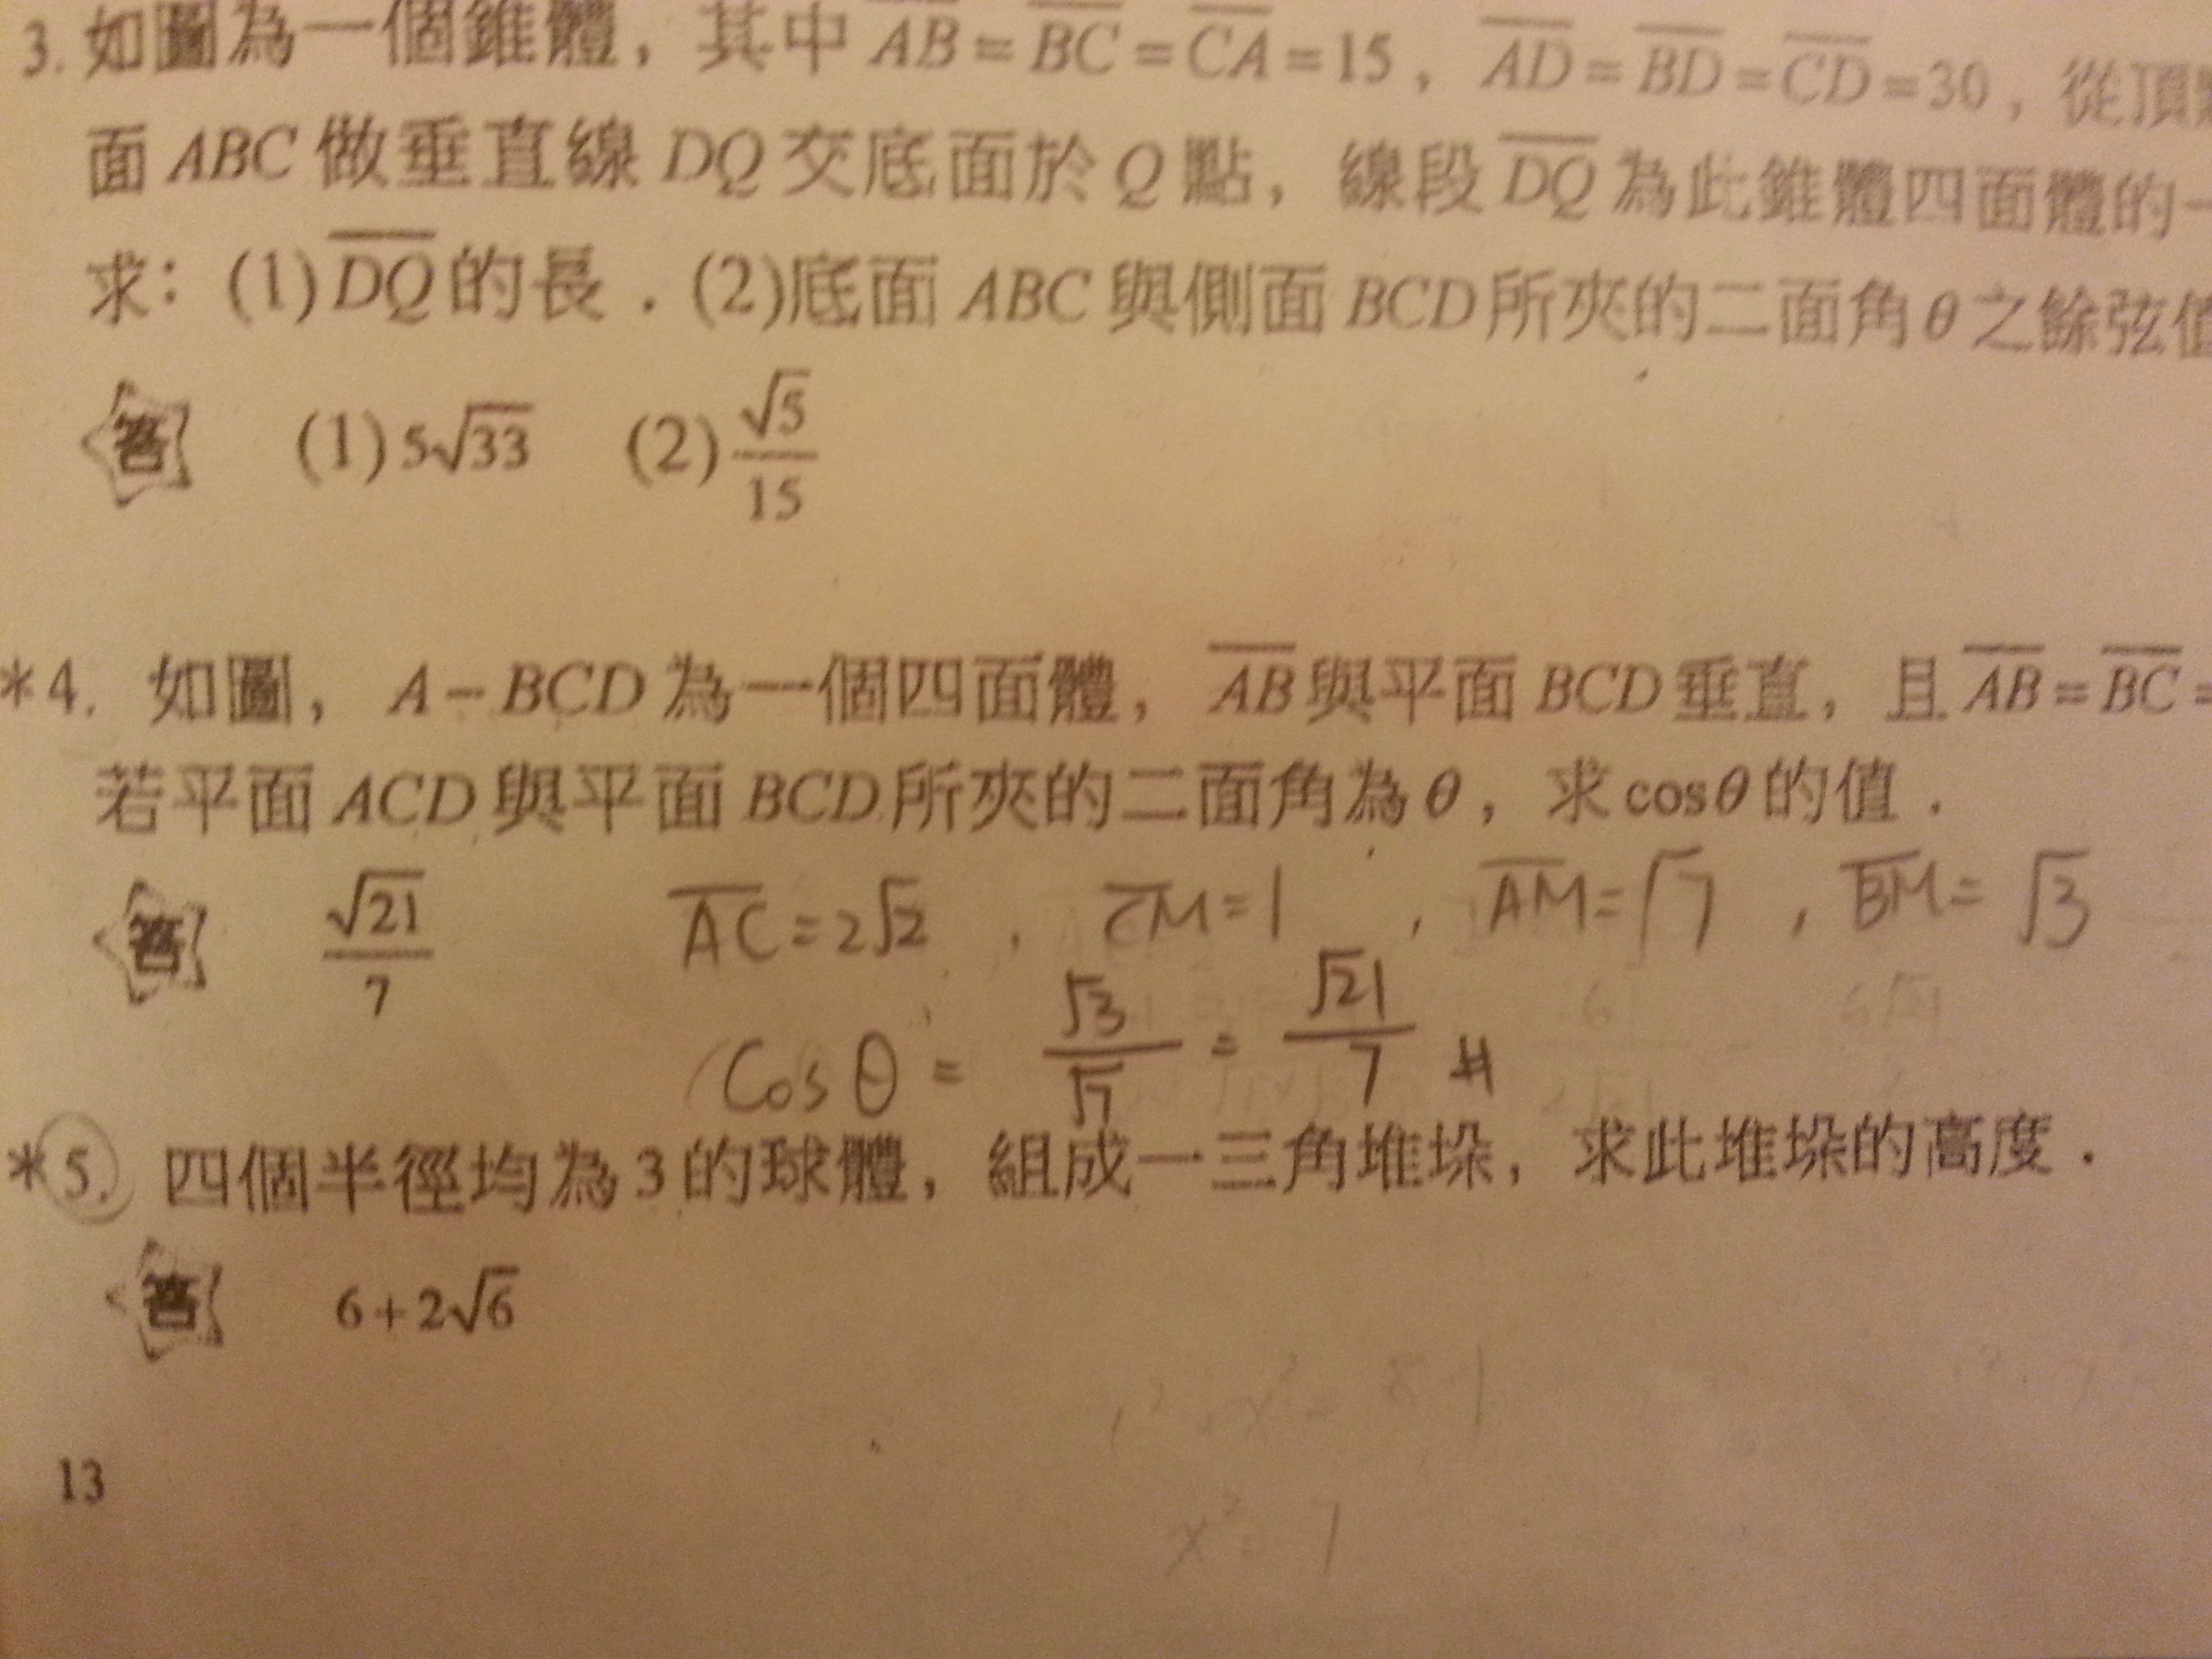 3. 如圖為一個錐體，其中 AB = BC = CA = 15，AD = BD = CD = 30，從頂
面 ABC 做垂直線 DQ 交底面於 Q 點，線段 DQ 為此錐體四面體的一
求：(1) DQ 的長．(2)底面 ABC 與側面 BCD 所夾的二面角 θ 之餘弦值
答 (1) 5√33 (2) √5/15
*4. 如圖，A－BCD 為一個四面體，AB 與平面 BCD 垂直，且 AB = BC =
若平面 ACD 與平面 BCD 所夾的二面角為 θ，求 cosθ 的值．
答 √21/7 AC = 2√2 , CM = 1 , AM = √7 , BM = √3
Cos θ = √3/√7 = √21/7 #
*5. 四個半徑均為 3 的球體，組成一三角堆垛，求此堆垛的高度．
答 6+2√6
x² = 7
13